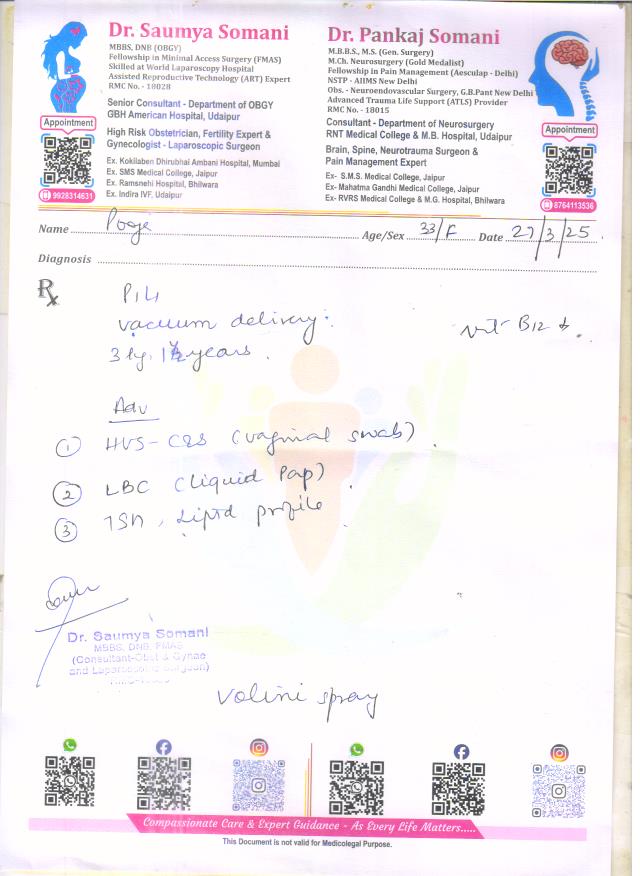 Dr. Saumya Somani
MBBS, DNB (OBGY)
Fellowship in Minimal Access Surgery (FMAS)
Skilled at World Laparoscopy Hospital
Assisted Reproductive Technology (ART) Expert
RMC No. - 18028
Senior Consultant - Department of OBGY
GBH American Hospital, Udaipur
High Risk Obstetrician, Fertility Expert &
Gynecologist - Laparoscopic Surgeon
Ex. Kokilaben Dhirubhai Ambani Hospital, Mumbai
Ex. SMS Medical College, Jaipur
Ex. Ramsnehi Hospital, Bhilwara
Ex. Indira IVF, Udaipur
Appointment
9928314631
Dr. Pankaj Somani
M.B.B.S., M.S. (Gen. Surgery)
M.Ch. Neurosurgery (Gold Medalist)
Fellowship in Pain Management (Aesculap - Delhi)
NSTP - AIIMS New Delhi
Obs. - Neuroendovascular Surgery, G.B.Pant New Delhi
Advanced Trauma Life Support (ATLS) Provider
RMC No. - 18015
Consultant - Department of Neurosurgery
RNT Medical College & M.B. Hospital, Udaipur
Brain, Spine, Neurotrauma Surgeon &
Pain Management Expert
Ex- S.M.S. Medical College, Jaipur
Ex- Mahatma Gandhi Medical College, Jaipur
Ex- RVRS Medical College & M.G. Hospital, Bhilwara
Appointment
8764113536
Name Pooja Age/Sex 33/F Date 27/3/25
Diagnosis
Rx
P1L1
vacuum delivery
years.
vit B12
Adv
① HVS - C&S (vaginal swab)
② LBC (liquid Pap)
③ TSH, Lipid profile
Dr. Saumya Somani
MBBS, DNB, FMAS
(Consultant-Obst & Gynae
and Laparoscopic Surgeon)
Volini spray
Compassionate Care & Expert Guidance - As Every Life Matters.....
This Document is not valid for Medicolegal Purpose.